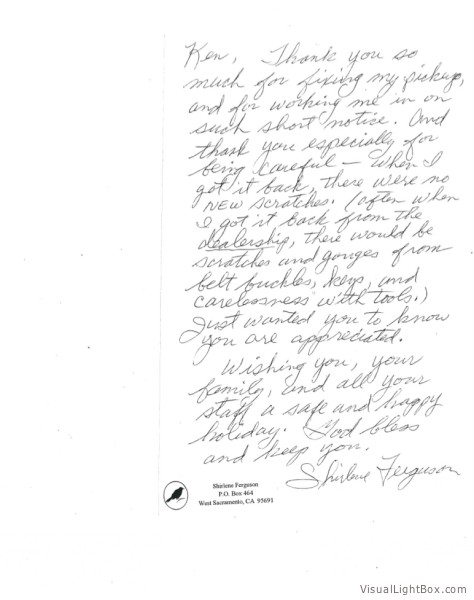 Ken, Thank you so
much for fixing my pickup,
and for working me in on
such short notice. And
thank you especially for
being careful — when I
got it back, there were no
NEW scratches. (often when
I got it back from the
dealership, there would be
scratches and gouges from
belt buckles, keys, and
carelessness with tools.)
Just wanted you to know
you are appreciated.
Wishing you, your
family, and all your
staff a safe and happy
holiday. God bless
and keep you.
Shirlene Ferguson
Shirlene Ferguson
P.O. Box 464
West Sacramento, CA 95691
VisualLightBox.com